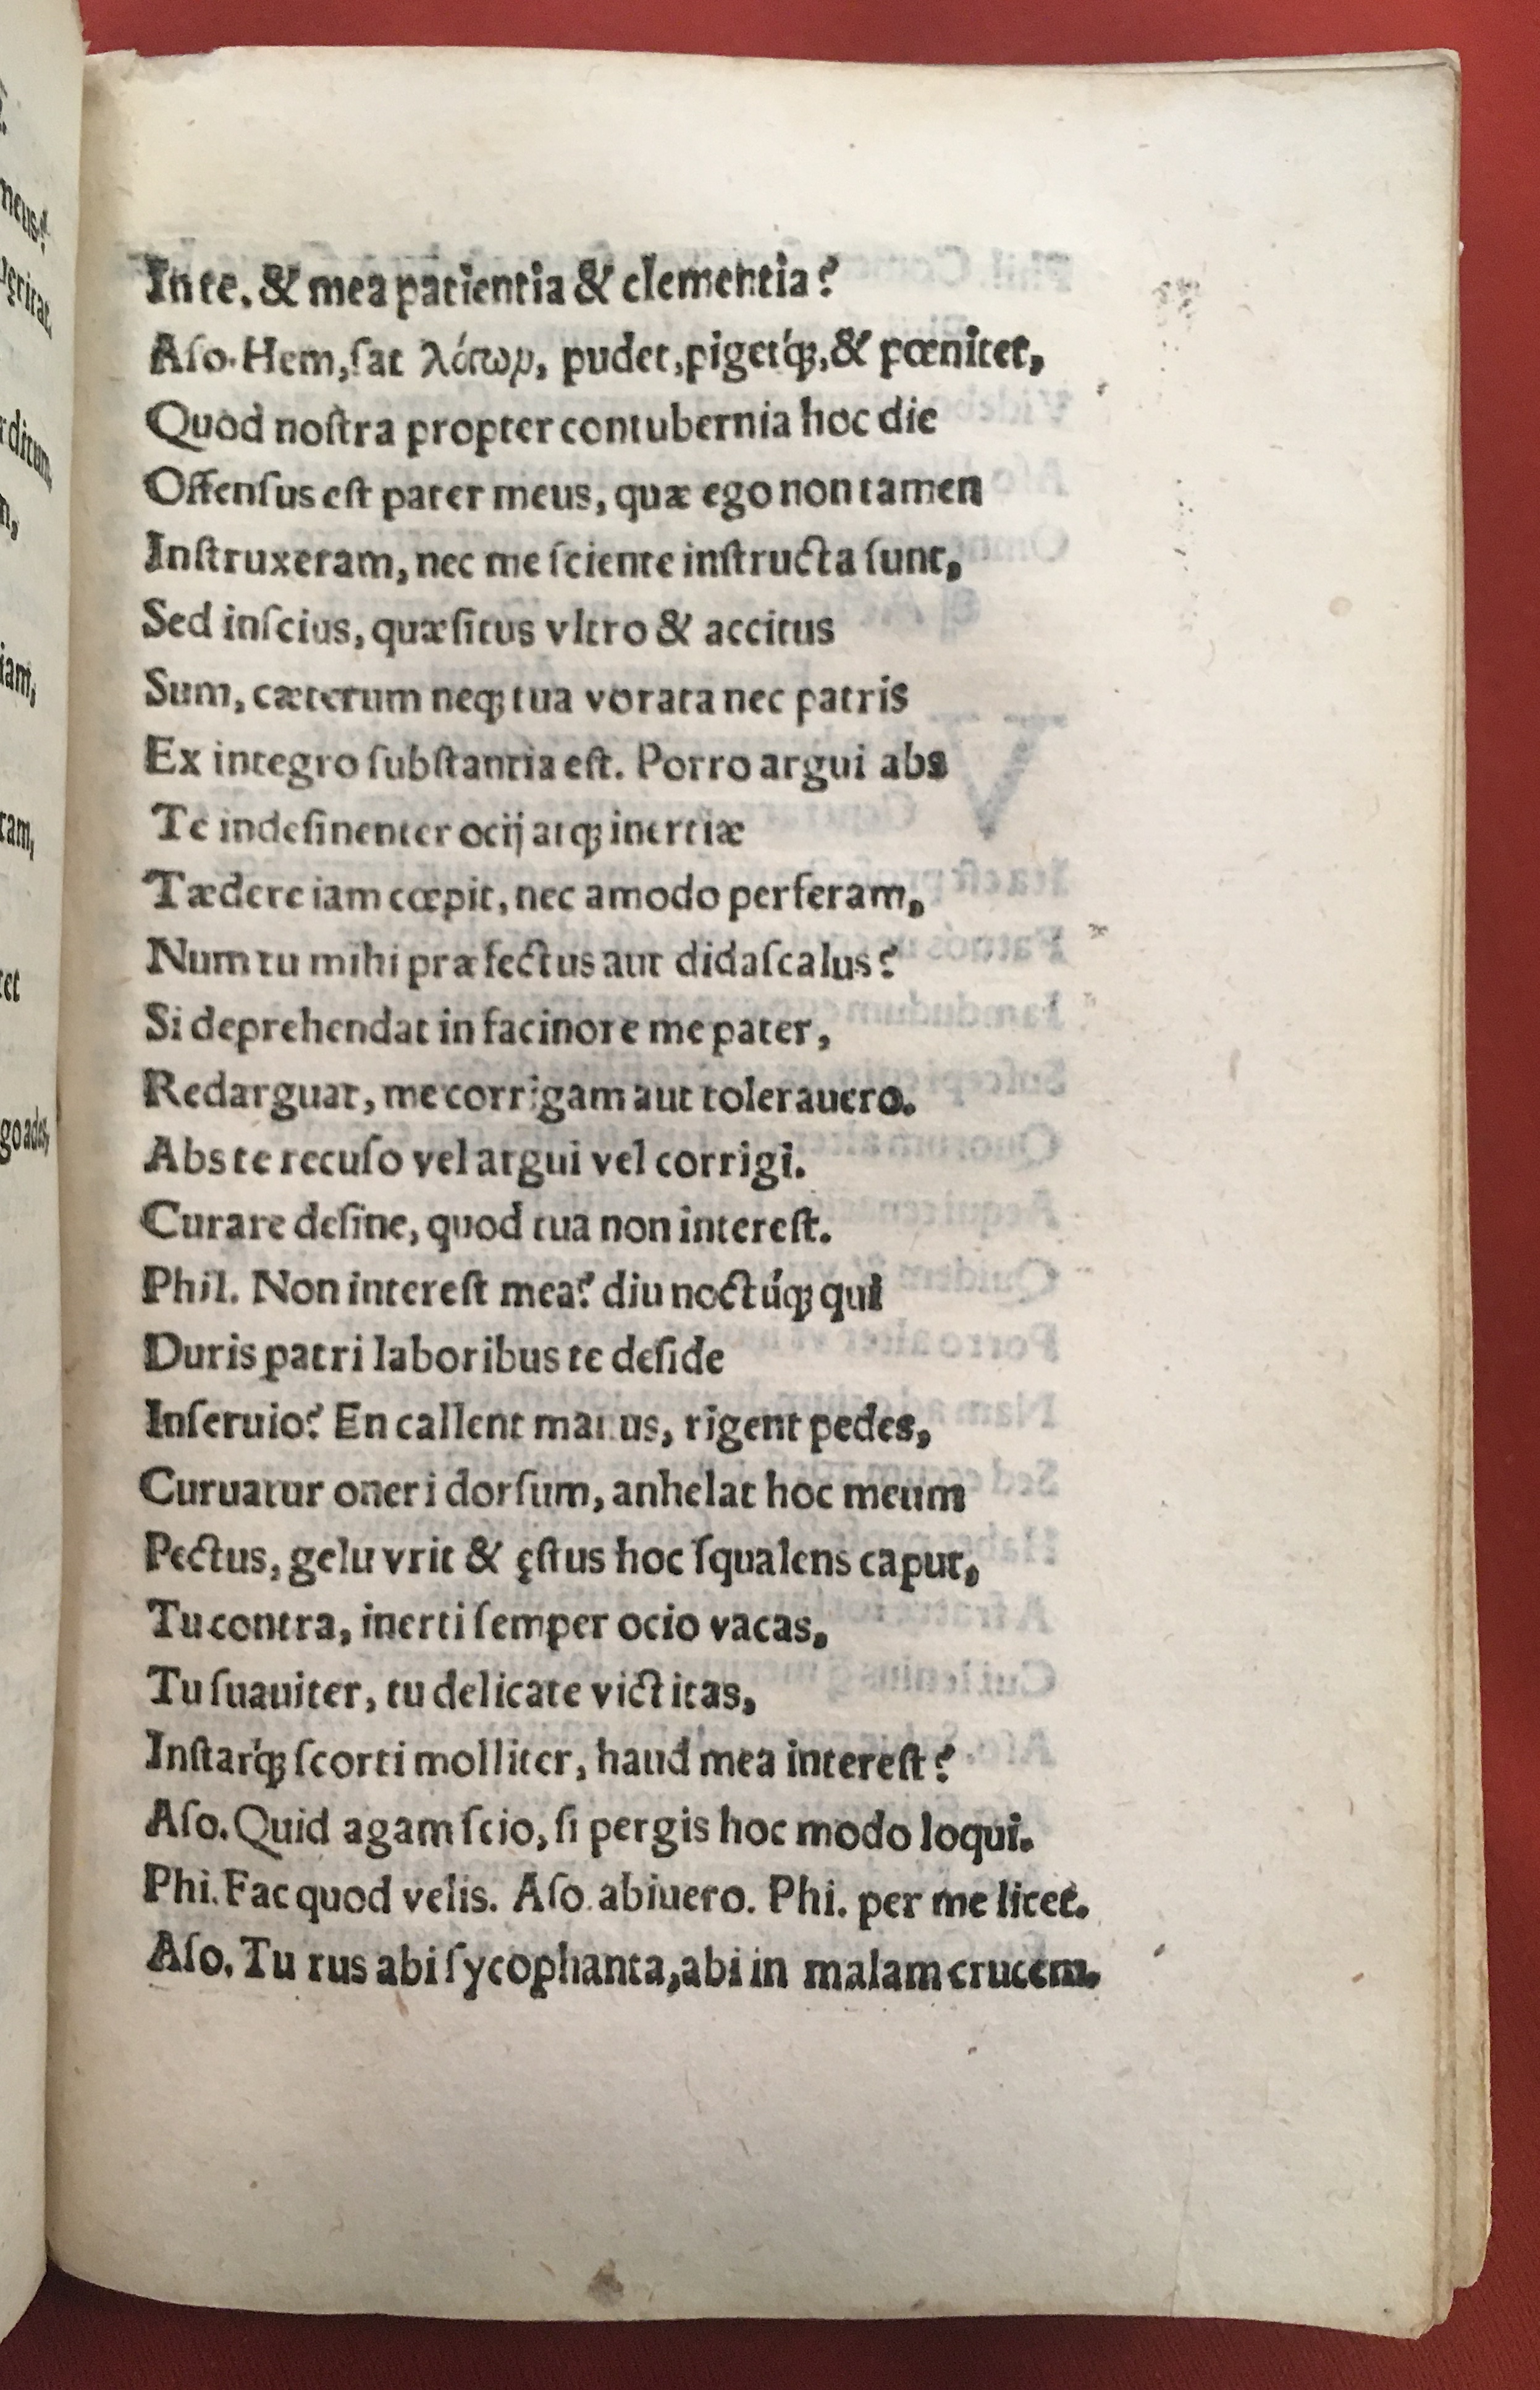 In te, & mea patientia & clementia?
Aſo. Hem, ſat λόγωρ, pudet, pigetq́ꝫ, & pœnitet,
Quod noſtra propter contubernia hoc die
Offenſus eſt pater meus, quæ ego non tamen
Inſtruxeram, nec me ſciente inſtructa ſunt,
Sed inſcius, quæſitus vltro & accitus
Sum, cæterum neqꝫ tua vorata nec patris
Ex integro ſubſtantia eſt. Porro argui abs
Te indeſinenter ocij atqꝫ inertiæ
Tædere iam cœpit, nec amodo perferam,
Num tu mihi præfectus aut didaſcalus?
Si deprehendat in facinore me pater,
Redarguat, me corrigam aut tolerauero.
Abs te recuſo vel argui vel corrigi.
Curare deſine, quod tua non intereſt.
Phil. Non intereſt mea? diu noctúqꝫ qui
Duris patri laboribus te deſide
Inſeruio? En callent manus, rigent pedes,
Curuatur oneri dorſum, anhelat hoc meum
Pectus, gelu vrit & ęſtus hoc ſqualens caput,
Tu contra, inerti ſemper ocio vacas,
Tu ſuauiter, tu delicate victitas,
Inſtarq́ꝫ ſcorti molliter, haud mea intereſt?
Aſo. Quid agam ſcio, ſi pergis hoc modo loqui.
Phi. Fac quod velis. Aſo. abiuero. Phi. per me licet.
Aſo. Tu rus abi ſycophanta, abi in malam crucem.